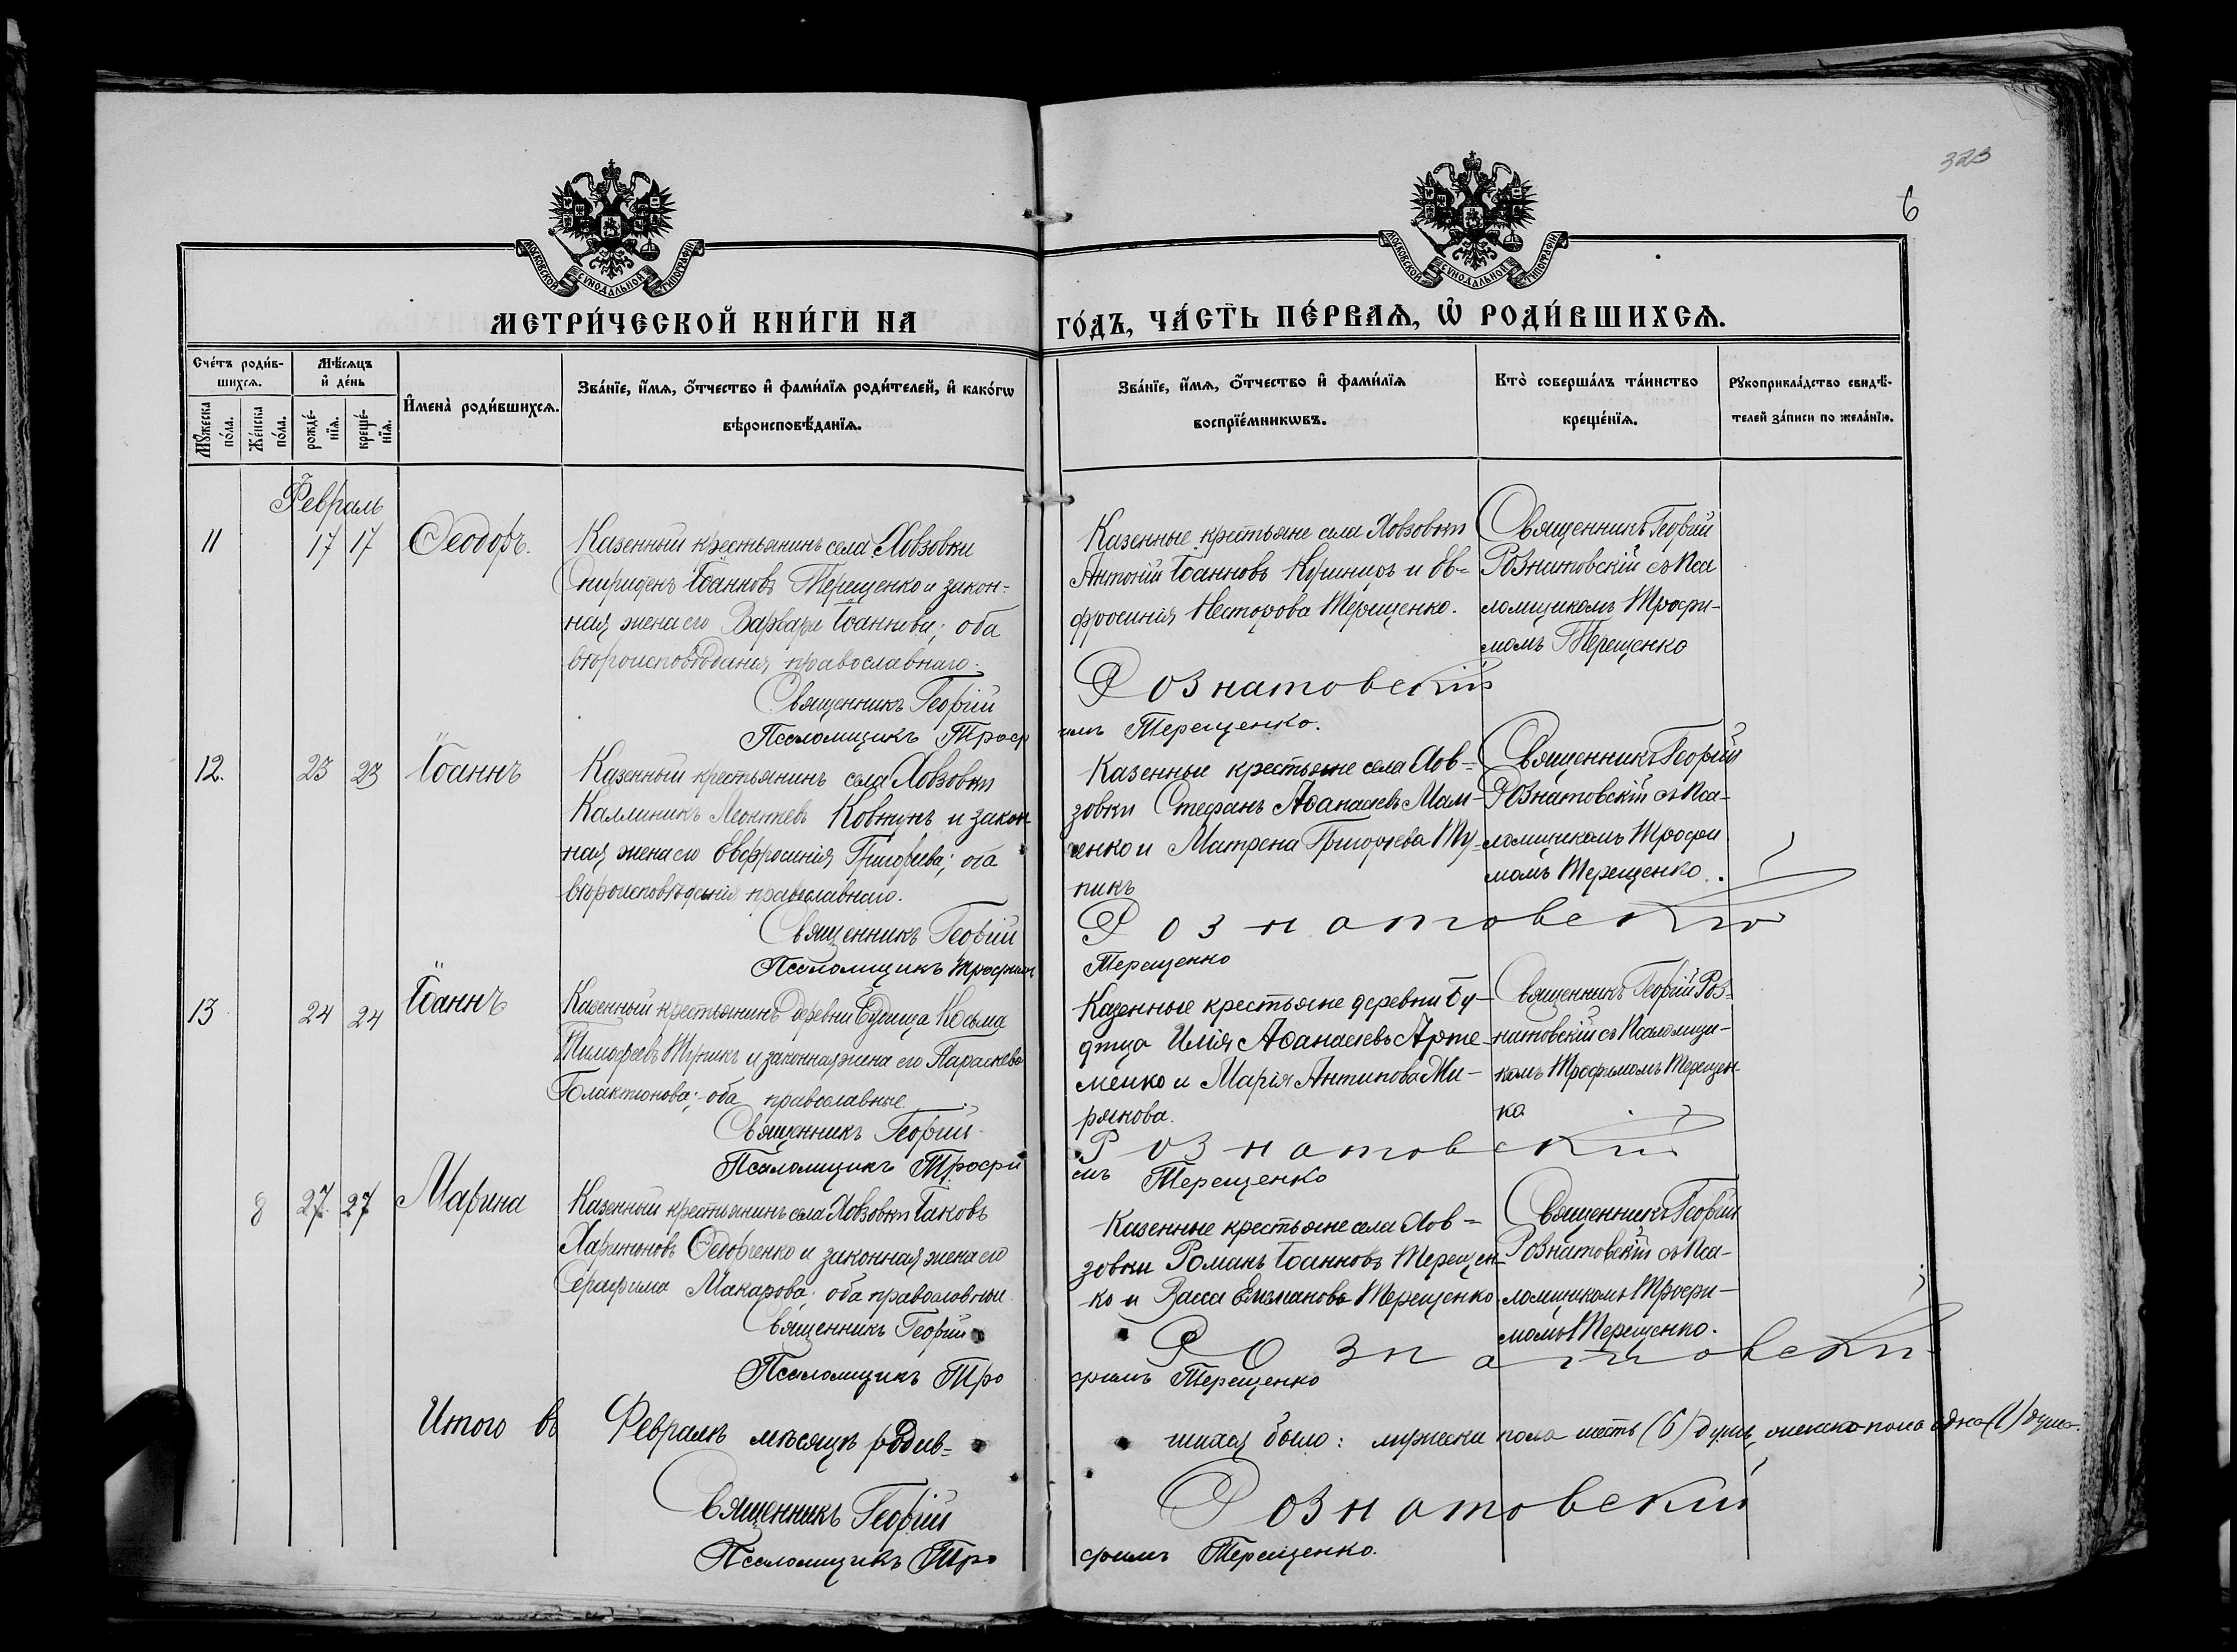 323
6
МОСКОВСКОЙ СѴНОДАЛЬНОЙ ТИПОГРАФІИ
МОСКОВСКОЙ СѴНОДАЛЬНОЙ ТИПОГРАФІИ
МЕТРИ́ЧЕСКОЙ КНИ́ГИ НА
ГО́ДЪ, ЧА́СТЬ ПЕ́РВАѦ, Ѡ҆ РОДИ́ВШИХСѦ.
Сче́тъ роди́в-
шихсѧ.
Мѣ́сѧцъ
и҆ де́нь
И҆мена̀ роди́вшихсѧ.
Зва́нїе, и҆́мѧ, ѻ҆́тчество и҆ фами́лїѧ роди́телей, и҆ како́гѡ
вѣроисповѣ́данїѧ.
Мꙋ́жеска по́ла.
Же́нска по́ла.
рожде́-нїѧ.
креще́-нїѧ.
Зва́нїе, и҆́мѧ, ѻ҆́тчество и҆ фами́лїѧ
воспрїе́мникѡвъ.
Кто̀ соверша́лъ та́инство
креще́нїѧ.
Рꙋкоприкла́дство свидѣ́-
телей за́писи по жела́нїю.
Февраль
11 17 17 Ѳеодоръ.
Казенный крестьянинъ села Ховзовки
Спиридонъ Іоанновъ Терещенко и закон-
ная жена его Варвара Іоаннова; оба
вѣроисповѣданія православнаго.
Священникъ Георгій
Псаломщикъ Троф
Казенные крестьяне села Ховзовки
Антоній Іоанновъ Кушниръ и Ев-
фросинія Несторова Терещенко.
Розматовскій
имъ Терещенко.
Священникъ Георгій
Розматовскій съ Пса
ломщикомъ Трофи-
момъ Терещенко
12. 23 23 Іоаннъ
Казенный крестьянинъ села Ховзовки
Каллиникъ Леонтіевъ Ковтунъ и закон-
ная жена его Евфросинія Григорьева; оба
вѣроисповѣданія православнаго.
Священникъ Георгій
Псаломщикъ Трофим
Казенные крестьяне села Хов-
зовки Стефанъ Аѳанасіевъ Мам-
ченко и Матрена Григорьева Ту-
пикъ
Розматовскій
Терещенко
Священникъ Георгій
Розматовскій съ Пса-
ломщикомъ Трофи
момъ Терещенко.
13 24 24 Іоаннъ
Казенный крестьянинъ деревни Будища Косьма
Тимофеевъ Тупикъ и законная жена его Параскева
Галактіонова; оба православные.
Священникъ Георгій
Псаломщикъ Трофи
Казенные крестьяне деревни Бу-
дища Илія Аѳанасіевъ Арте-
менко и Марія Антипова Ми-
рякова.
Розматовскій
мъ Терещенко
Священникъ Георгій Роз-
матовскій съ Псаломщи-
комъ Трофимомъ Терещен-
ко
8 27 27 Марина
Казенный крестьянинъ села Ховзовки Іаковъ
Харитоновъ Ѳедорченко и законная жена его
Серафима Макарова; оба православные
Священникъ Георгій
Псаломщикъ Тро
Казенные крестьяне села Хов-
зовки Романъ Іоанновъ Терещен-
ко и Васса Терещенко.
Розматовскій
фимъ Терещенко
Священникъ Георгій
Розматовскій съ Пса-
ломщикомъ Трофи-
момъ Терещенко.
Итого въ Февралѣ мѣсяцѣ родив-
шихся было: мужеска пола шесть (6) душъ, женска пола одна (1) душа.
Священникъ Георгій
Розматовскій
Псаломщикъ Тро
фимъ Терещенко.